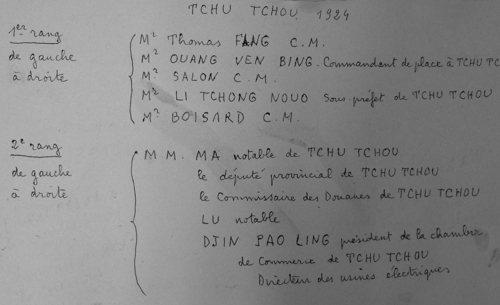 TCHU TCHOU 1924
1er rang
de gauche
à droite
Mr Thomas FANG C.M.
Mr OUANG VEN BING - Commandant de place à TCHU TC
Mr SALON C.M.
Mr LI TCHONG NOUO Sous-préfet de TCHU TCHOU
Mr BOISARD C.M.
2e rang
de gauche
à droite
M M. MA notable de TCHU TCHOU
le député provincial de TCHU TCHOU
le Commissaire des Douanes de TCHU TCHOU
LU notable
DJIN PAO LING président de la chambre
de Commerce de TCHU TCHOU
Directeur des usines électriques